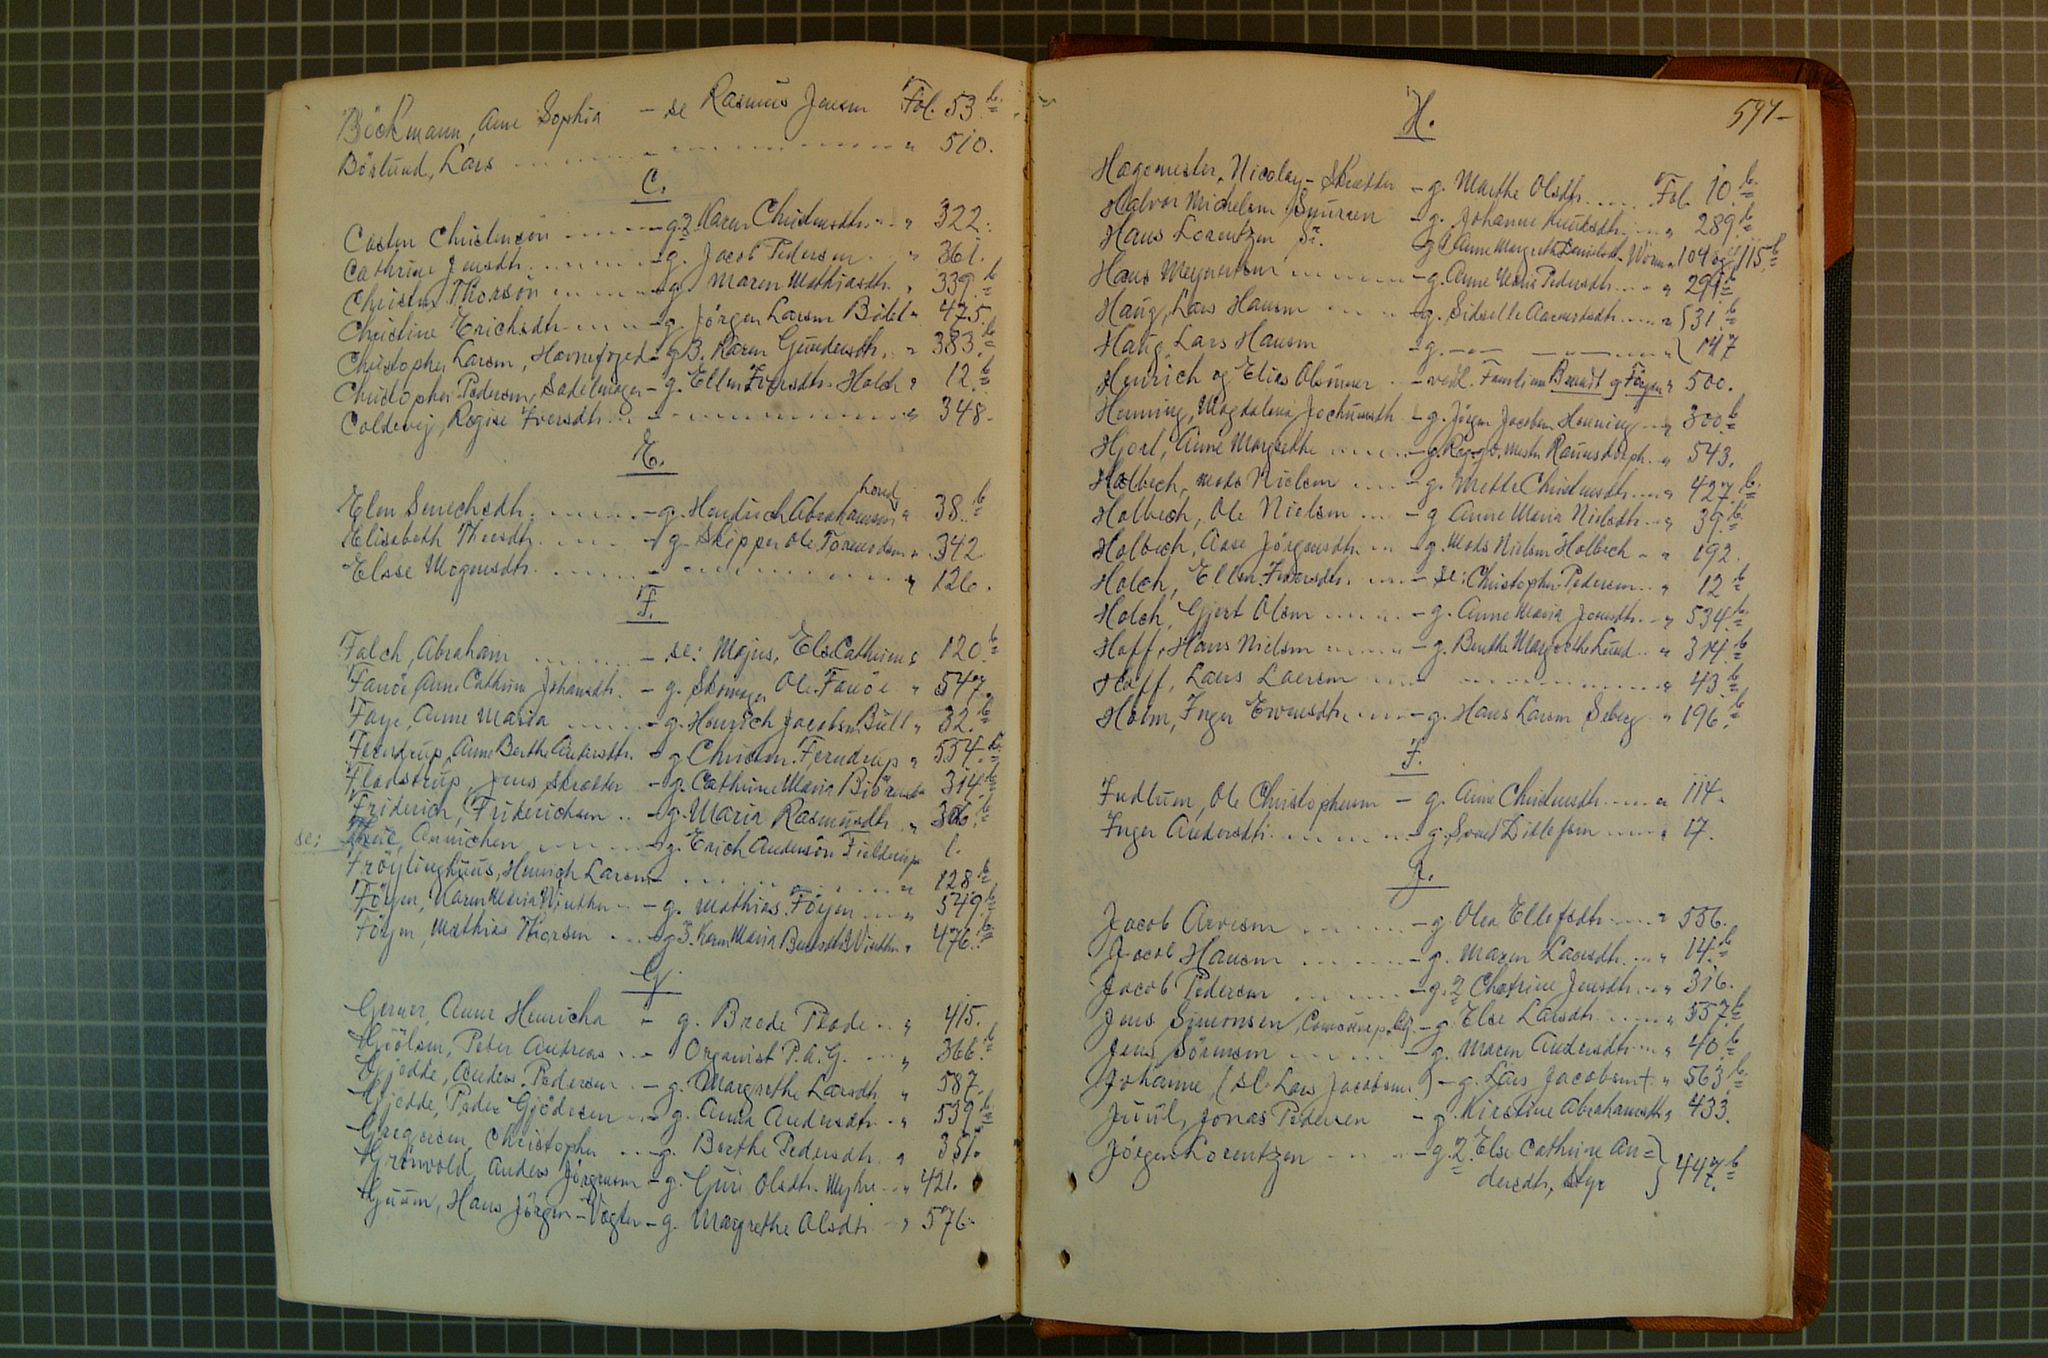 Böckmann, Ane Sophia - se Rasmus Jensen Fol. 53.b
Böslund, Lars " 510.
C.
Casten Christensön - g. 2. Karen Christensdtr. " 322.
Cathrine Jensdtr. - g. Jacob Pedersen " 361.
Christen Thorsön - g. Maren Mathiasdtr. " 339.b
Christine Erichsdtr. - g. Jörgen Larsen " 475.
Christopher Larsen, Havnefoged - g. 3. Karen Gundersdtr. " 383.b
Christopher Pedersen, Sadelmager - g. Ellen Iversdtr. Holch " 12.b
Coldevij, Regise Iversdtr. " 348.
E.
Elen Sm - g. Hendrich Abrahamsen " 38.b
Elisabeth Theesdtr. - g. Skipper Ole " 342
Elsse Mogensdtr. " 126.
F.
Falch, Abraham - se: Majus, Els Cathrine 120.b
Fanöe, Ane Cathrine Johansdtr. - g. Skomager Ole Fanöe " 547.
Faye, Anne Maria - g. Henrich Jacobsen Bull " 32.b
Ferndrup, Ane Berthe Andersdtr. - g. Christen Ferndrup " 554.b
Fladstrup, Jens, Skrædder - g. Cathrine Maria " 314.b
Friderich, Friderichsen - g. Maria Rasmusdtr. " 306.b
se: Annichen - g. Erich Andersön Fieldrup 1.
Fröylinghuus, Henrich Larsen " 128.b
Föyen, Karen Maria Winther - g. Mathias Föyen " 549.b
Föyen, Mathias Thorsen - g. 3. Karen Maria Winther " 476.b
G.
Gerner, Anne Henricha - g. Brede Plade " 415.
Gjölsen, Peter Andreas - Organist P. A. G. " 366.b
Gjedde, Anders Pedersen - g. Margrethe Larsdtr. " 587.
Gjedde, Peder Gjödesen - g. Anna Andersdtr. " 539.b
Gregersen, Christopher - g. Berthe Pedersdtr. " 351.
Grönvold, Anders Jörgensen - g. Guri Olsdtr. Myhre " 421.
Guum, Hans Jörgen - Vægter - g. Margrethe Olsdtr. " 576.
597-
H.
Hagemester, Nicolay - Skrædder - g. Marthe Olsdtr. Fol. 10.b
Halvor Michelsen Snursen - g. Johanne Knudsdtr. " 289.b
Hans Lorentzen, Sr. g. Anne Margreta Worm " 104 og 115.b
Hans Meynertsen - g. Anne Maria Pedersdtr. " 299.b
Haug, Lars Hansen - g. Sidselle " { 31.b
Haug, Lars Hansen - g. " } 147
Henrich og Elias Olsönner - vedk. Familien Brandt og Föyen " 500.
Henning, Magdalena Jochumsdtr. - g. Jörgen Jacobsen Henning " 300.b
Hjort, Anne Margrethe - g. Reg.qv.mester " 543.
Holbech, Mads Nielsen - g. Mette Christensdtr. " 427.b
Holbech, Ole Nielsen - g. Anne Maria Nielsdtr. " 39.b
Holbech, Aase Jörgensdtr. - g. Mads Nielsen Holbech " 192.
Holch, Ellen Iversdtr. - se: Christopher Pedersen " 12.b
Holch, Gjert Olsen - g. Anne Maria Jensdtr. " 534.b
Hoff, Hans Nielsen - g. Benthe Margrethe Lund " 314.b
Hoff, Lars Larsen " 43.b
Holm, Inger Evensdtr. - g. Hans Larsen Seberg " 196.b
I.
Indlum, Ole Christophersen - g. Ane Christensdtr. " 114.
Inger Andersdtr. - g. Svend Ditlefsen " 17.
J.
Jacob Arvesen - g. Olea Ellefsdtr. " 556.
Jacob Hansen - g. Maren Larsdtr. " 14.b
Jacob Pedersen - g. 2 Chatrine Jensdtr. " 316.
Jens Simonsen, - g. Else Larsdtr. " 557.b
Jens Sörensen - g. Maren Andersdtr. " 40.b
Johanne (Sl. Lars Jacobsens) - g. Lars Jacobsen † " 563.b
Juul, Jonas Pedersen - g. Kirstine Abrahamsdtr. " 433.
Jörgen Lorentzen - g. 2. Else Cathrine An= } 447.b
dersdtr. Styr